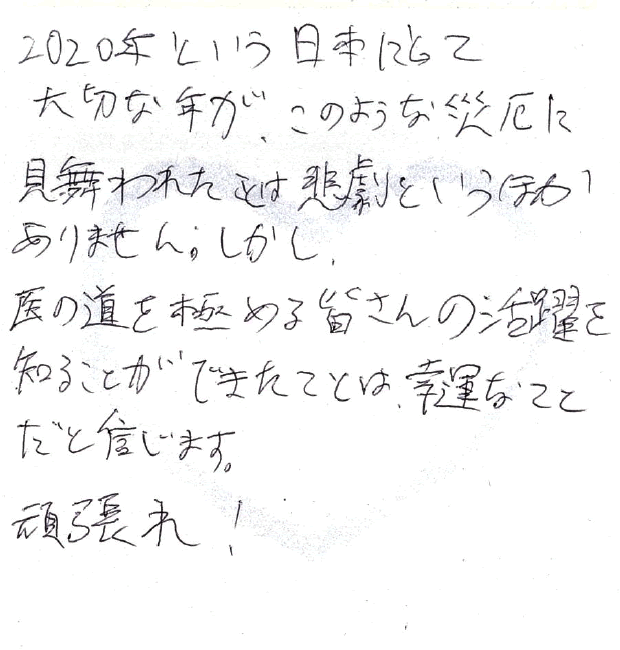 2020年という日本にとって
大切な年が、このような災厄に
見舞われたことは悲劇というほか
ありません。しかし、
医の道を極める皆さんの活躍を
知ることができたことは、幸運なこと
だと信じます。
頑張れ!